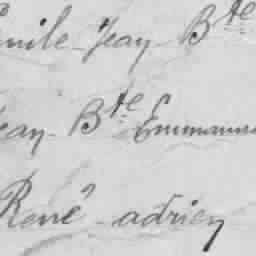 Emile Jean Bte
Jean Bte Emmanu
René adrien